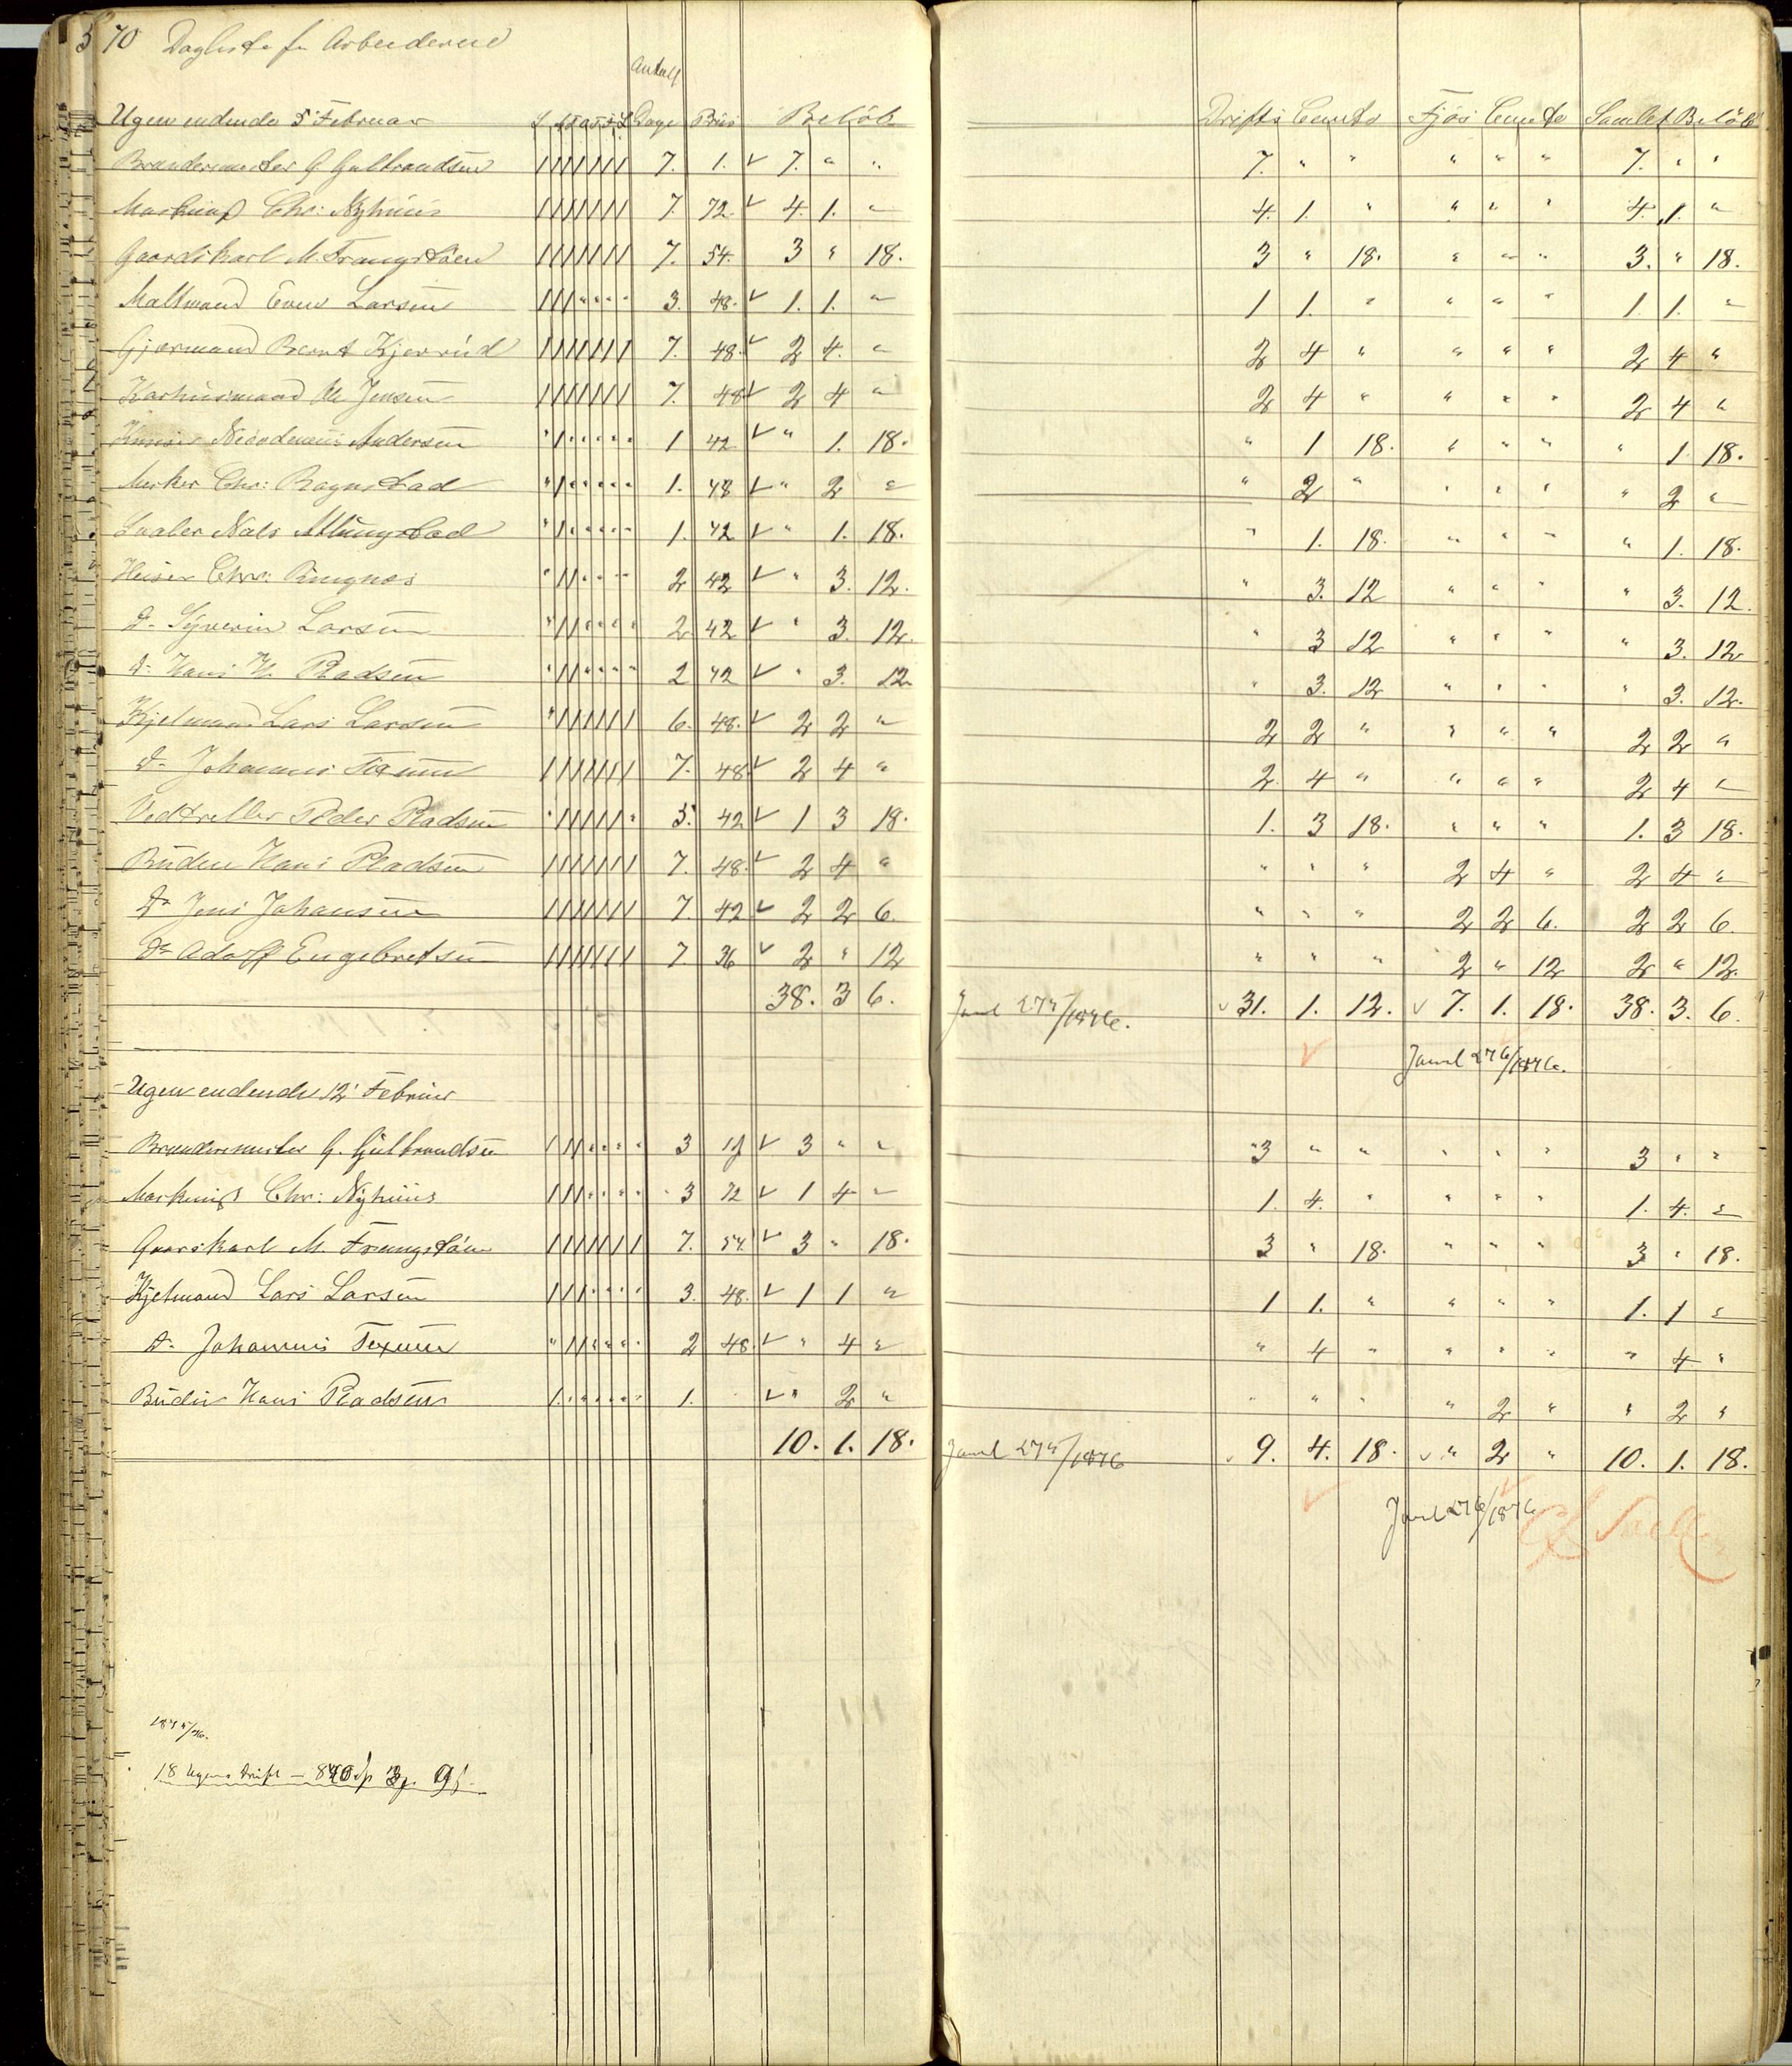 370 Dagliste for Arbeiderne
Antall
Ugen endende 5' Februar S M T O T F L Dage Priis Beløb Drifts Conto Fjøs Conto Samlet Beløb
Brændemester G. Gulbrandsen 7. 1. 7. " " 7. " " " " " 7. " "
Chr: Nyhuus 7. 72. 4. 1. " 4. 1. " " " " 4. 1. "
Gaardskarl M. Frangstøen 7. 54. 3 " 18. 3 " 18. " " " 3. " 18.
Maltmand Even Larsen 3. 48. 1. 1. " 1 1. " " " " 1. 1. "
Gjærmand Bernt Kjærrud 7. 48. 2 4. " 2 4 " " " " 2 4 "
Karhusmand Ole Jensen 7. 48 2 4 " 2 4 " " " " 2 4 "
Nicodemus Andersen 1 42 " 1. 18. " 1 18. " " " " 1 18.
Mesker Chr: Ragnstad 1. 48 " 2 " " 2 " " " " " 2 "
Laaler Nils Atlungstad 1. 42 " 1. 18. " 1. 18. " " " " 1. 18.
Huser Chr: Ringnes 2 42 " 3. 12. " 3. 12 " " " " 3. 12.
Do Syverin Larsen 2 42 " 3. 12. " 3 12 " " " " 3. 12
Do Hans H. Pladsen 2 42 " 3. 12 " 3. 12 " " " " 3. 12.
Kjelmand Lars Larsen 6. 48. 2 2 " 2 2 " " " " 2 2 "
Do Johannes 7. 48 2 4 " 2. 4 " " " " 2 4 "
Vedtreller Peder Pladsen 5. 42 1 3 18. 1. 3 18. " " " 1. 3 18.
Hans Pladsen 7. 48. 2 4 " " " " 2 4 " 2 4 "
Do Jens Johansen 7. 42 2 2 6. " " " 2 2 6. 2 2 6.
Do Adolf Engebretsen 7. 36 2 " 12 " " " 2 " 12 2 " 12.
38. 3 6. Jound 275/1876. 31. 1. 12. 7. 1. 18. 38. 3. 6.
276/1876.
Ugen endende 12' Februar
Brændemester G. Gulbrandsen 3 3 " " 3 " " " " " 3 " "
Chr: Nyhuus 3 72 1 4 " 1. 4. " " " " 1. 4. "
Gaardskarl M. Frangstøen 7. 54. 3 " 18. 3 " 18. " " " 3 " 18.
Kjelmand Lars Larsen 3. 48. 1 1 " 1 1. " " " " 1. 1 "
Do Johannes 2 48. " 4 " " 4 " " " " " 4 "
Hans Pladsen 1. " 2 " " " " " 2 " " 2 "
10. 1. 18. 275/1876 9. 4. 18. " 2 " 10. 1. 18.
276/1876
1875/76.
18 Ugers Drift —